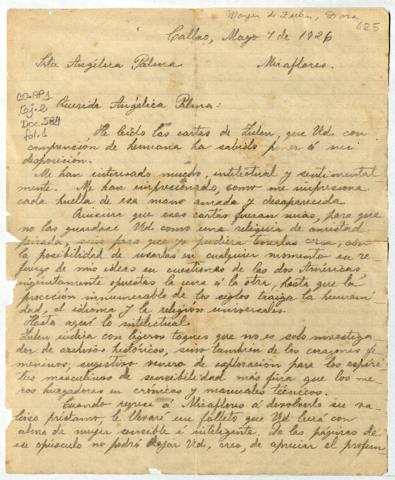 Mayer de Zulen, Dora
625
Callao, Mayo 7 de 1926
Srta Angélica Palma
Miraflores.
CO-AP1
Caj. 2
Doc. 584
fol. 1
Querida Angélica Palma:
He leido las cartas de Zulen, que Ud. con
comprension de hermana ha sabido poner á mi
disposición.
Me han interesado mucho, intelectual y sentimental
mente. Me han impresionado, como me impresiona
cada huella de esa mano amada y desaparecida.
Quisiera que esas cartas fueran mias, para que
no las guardase Ud. como una reliquia de amistad
sino para que yo pudiera con
la posibilidad de usarlas en cualquier momento en re
fuerzo de mis ideas en cuestiones de las dos Américas,
ingentemente opuestas la una á la otra, hasta que la
procesion innumerable de los siglos traiga la humani
dad, el idioma y la religión universales.
Hasta aquí lo intelectual.
Zulen indica con ligeros toques que no es solo investiga
dor de archivos históricos, sino también de los corazones fe
meninos, sugestivo venero de exploración para los espíri
tus masculinos de sensibilidad más fina que los me
ros huroneadores en crónicas y manuales técnicos.
Cuando regrese á Miraflores á devolverle su va
lioso préstamo, le llevaré un folleto que Ud. leerá con
alma de mujer sensible é inteligente. De las páginas de
ese opúsculo no podrá dejar Ud., creo, de apreciar el profun